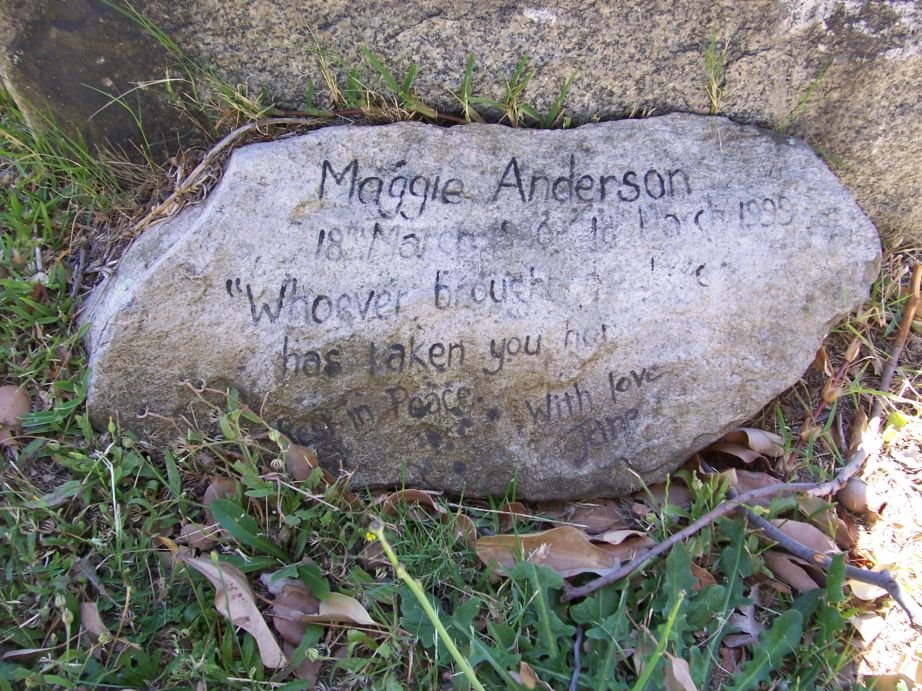 Maggie Anderson
18th March March 1995
"Whoever brought
has taken you
Rest in Peace. With love